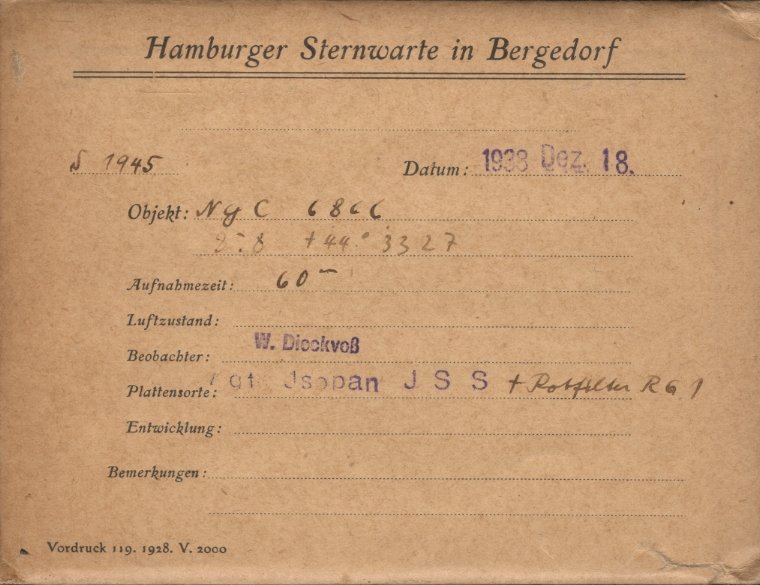 Hamburger Sternwarte in Bergedorf
S 1945 Datum: 1938 Dez. 18.
Objekt: NGC 6866
+44° 3327
Aufnahmezeit: 60ᵐ
Luftzustand:
Beobachter: W. Dieckvoß
Plattensorte: Agfa Jsopan J S S + Rotfilter RG 1
Entwicklung:
Bemerkungen:
Vordruck 119. 1928. V. 2000